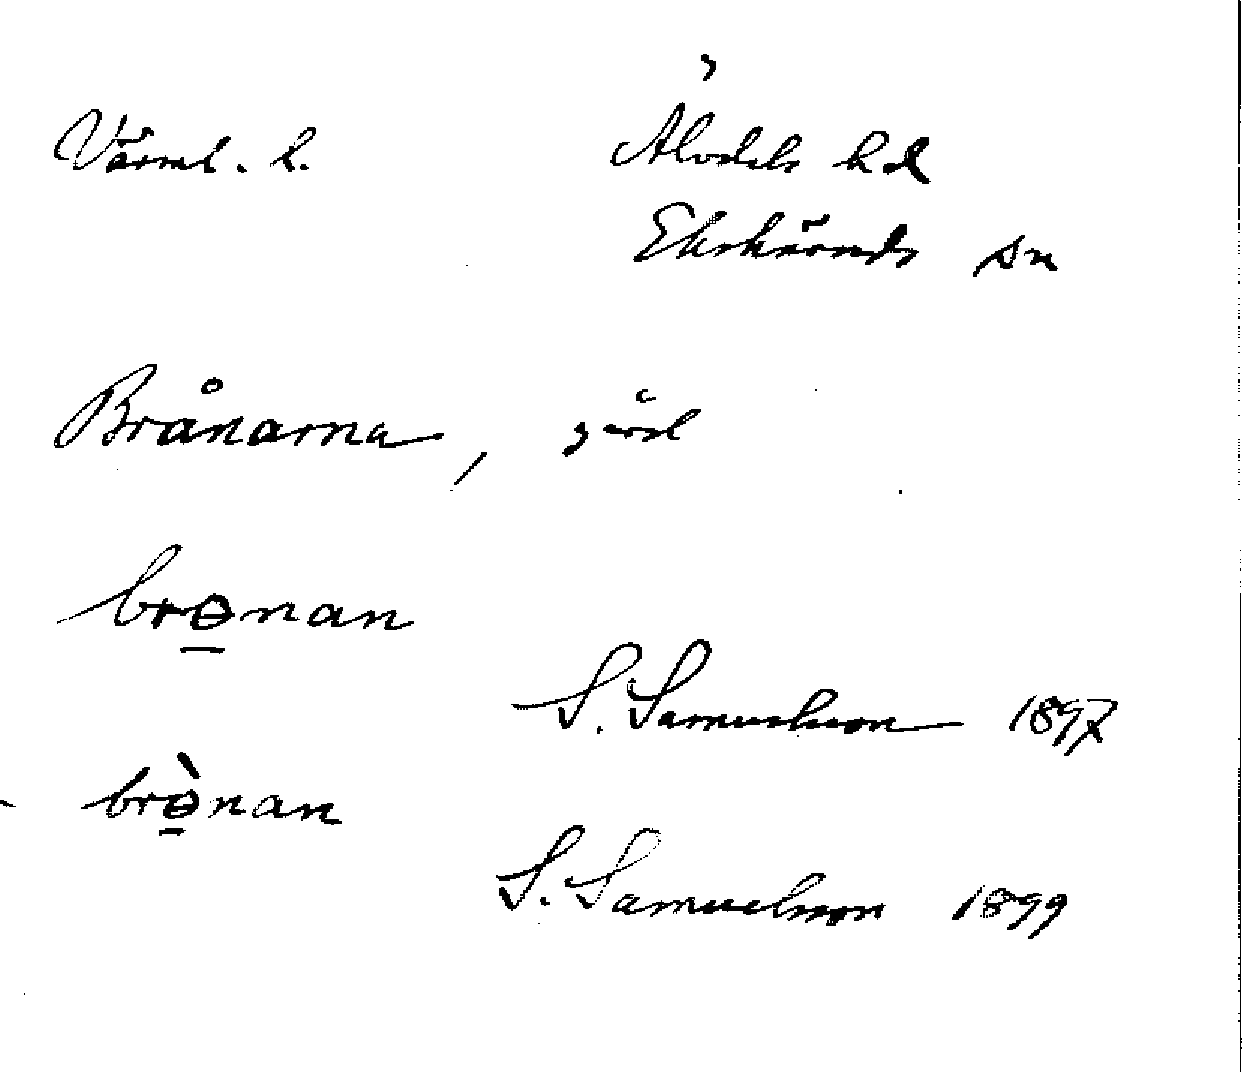 Värml. l. Älvdals hd
Ekshärads sn
Brånarna, gård
brɵ̱nan
S. Samuelsson 1897
brɵ̱̀nan
S. Samuelsson 1899